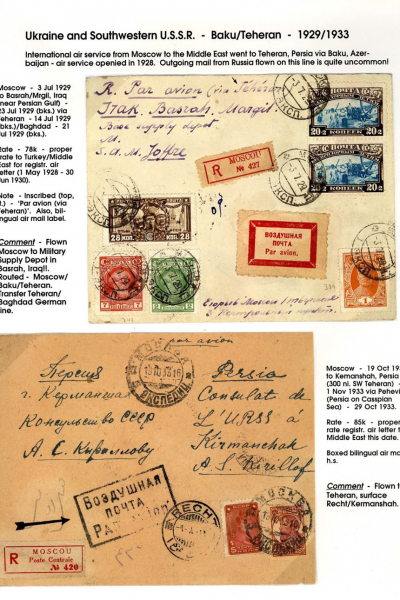 Ukraine and Southwestern U.S.S.R. - Baku/Teheran - 1929/1933
International air service from Moscow to the Middle East went to Teheran, Persia via Baku, Azer-
baijan - air service openied in 1928. Outgoing mail from Russia flown on this line is quite uncommon!
Moscow - 3 Jul 1929
to Basrah/Mrgil, Iraq
near Persian Gulf) -
23 Jul 1929 (bks.) via
Teheran - 14 Jul 1929
(bks.)/Baghdad - 21
Jul 1929 (bks.).
Rate - 78k - proper
rate to Turkey/Middle
East for registr. air
letter (1 May 1928 - 30
Jun 1930).
Note - Inscribed (top,
r.) - 'Par avion (via
Teheran)'. Also, bil-
ingual air mail label.
Comment - Flown
Moscow to Military
Supply Depot in
Basrah, Iraq!!.
Routed - Moscow/
Baku/Teheran.
Transfer Teheran/
Baghdad German
line.
R. Par avion (via Teherá
Irak. Basrah. Margil.
Base supply depot
M.
S.d.M. Joffre
R MOSCOU
№ 427
ПОЧТА
20 КОПЕЕК 20
ПОЧТА
20 КОПЕЕК 20
28 КОП. 28
7 7
2 2
1
ВОЗДУШНАЯ
ПОЧТА
Par avion.
par avion
МОСКВА
Персия
г. Керманшах
Консульство СССР
А. С. Кириллову
Persia
Consulat de
L'URSS à
Kirmanchak
A. S. Kirillof
ВОЗДУШНАЯ
ПОЧТА
PAR
RECHT
МОСКВА
R MOSCOU
Poste Centrale
№ 420
Moscow - 19 Oct 193
to Kemanshah, Persia
(300 nl. SW Teheran) -
1 Nov 1933 via Pehevi
(Persia on Casspian
Sea) - 29 Oct 1933.
Rate - 85k - proper
rate registr. air letter to
Middle East this date.
Boxed bilingual air mail
h.s.
Comment - Flown to
Teheran, surface
Recht/Kermanshah.